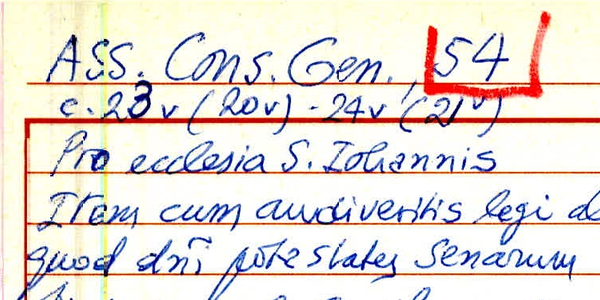 ASS. Cons. Gen., 54
c. 23v (20v) - 24v (21v)
Pro ecclesia S. Iohannis
Item cum audiveritis legi
quod dñi potestates Senarum